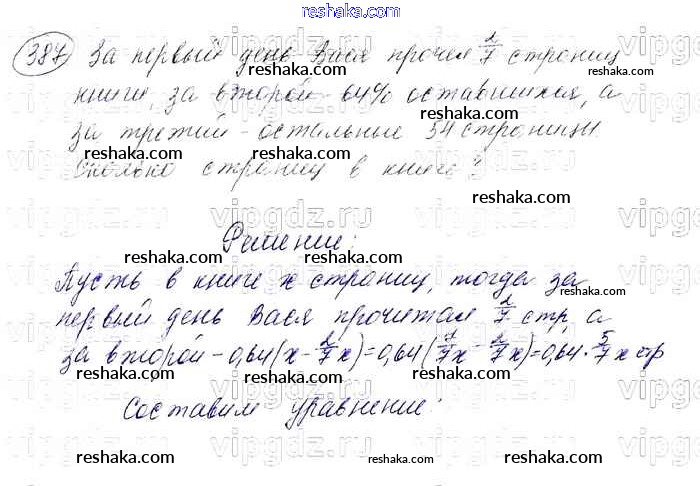 reshaka.com
387 За первый день Вася прочел 2/7 страниц
reshaka.com reshaka.com
книги, за второй - 64% оставшихся, а
за третий - остальные 54 страницы
reshaka.com reshaka.com
Сколько страниц в книге?
reshaka.com
Решение:
reshaka.com reshaka.com
Пусть в книге x страниц, тогда за
reshaka.com
первый день Вася прочитал 2/7 стр, а
reshaka.com
за второй - 0,64(x - 2/7x) = 0,64(7/7x - 2/7x) = 0,64 · 5/7 x стр
reshaka.com reshaka.com
Составим уравнение:
reshaka.com reshaka.com reshaka.com
vipgdz.ru